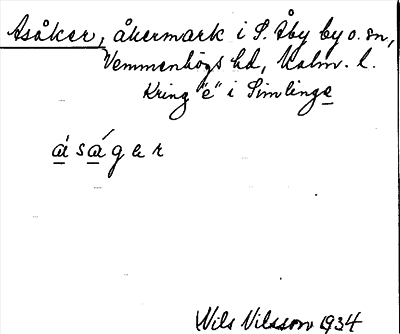 Asåker, åkermark i S. Åby by o. sn,
Vemmenhögs hd, Malm. l.
Kring "e" i Simlinge
a̲s á̲ g e r
Nils Nilsson 1934